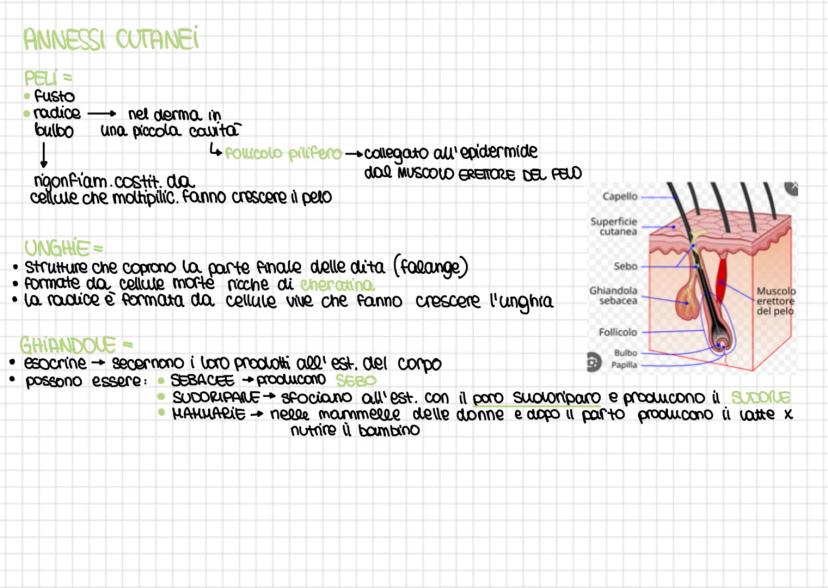 ANNESSI CUTANEI
PELI =
• fusto
• radice → nel derma in
bulbo una piccola cavità
↓ ↳ follicolo pilifero → collegato all'epidermide
dal MUSCOLO ERETTORE DEL PELO
rigonfiam. costit. da
cellule che moltiplic. fanno crescere il pelo
UNGHIE =
• strutture che coprono la parte finale delle dita (falange)
• formate da cellule morte ricche di cheratina
• la radice è formata da cellule vive che fanno crescere l'unghia
GHIANDOLE =
• esocrine → secernono i loro prodotti all'est. del corpo
• possono essere: • SEBACEE → producono SEBO
• SUDORIPARE → sfociano all'est. con il poro sudoriparo e producono il SUDORE
• MAMMARIE → nelle mammelle delle donne e dopo il parto producono il latte x
nutrire il bambino
Capello
Superficie
cutanea
Sebo
Ghiandola
sebacea
Muscolo
erettore
del pelo
Follicolo
Bulbo
Papilla